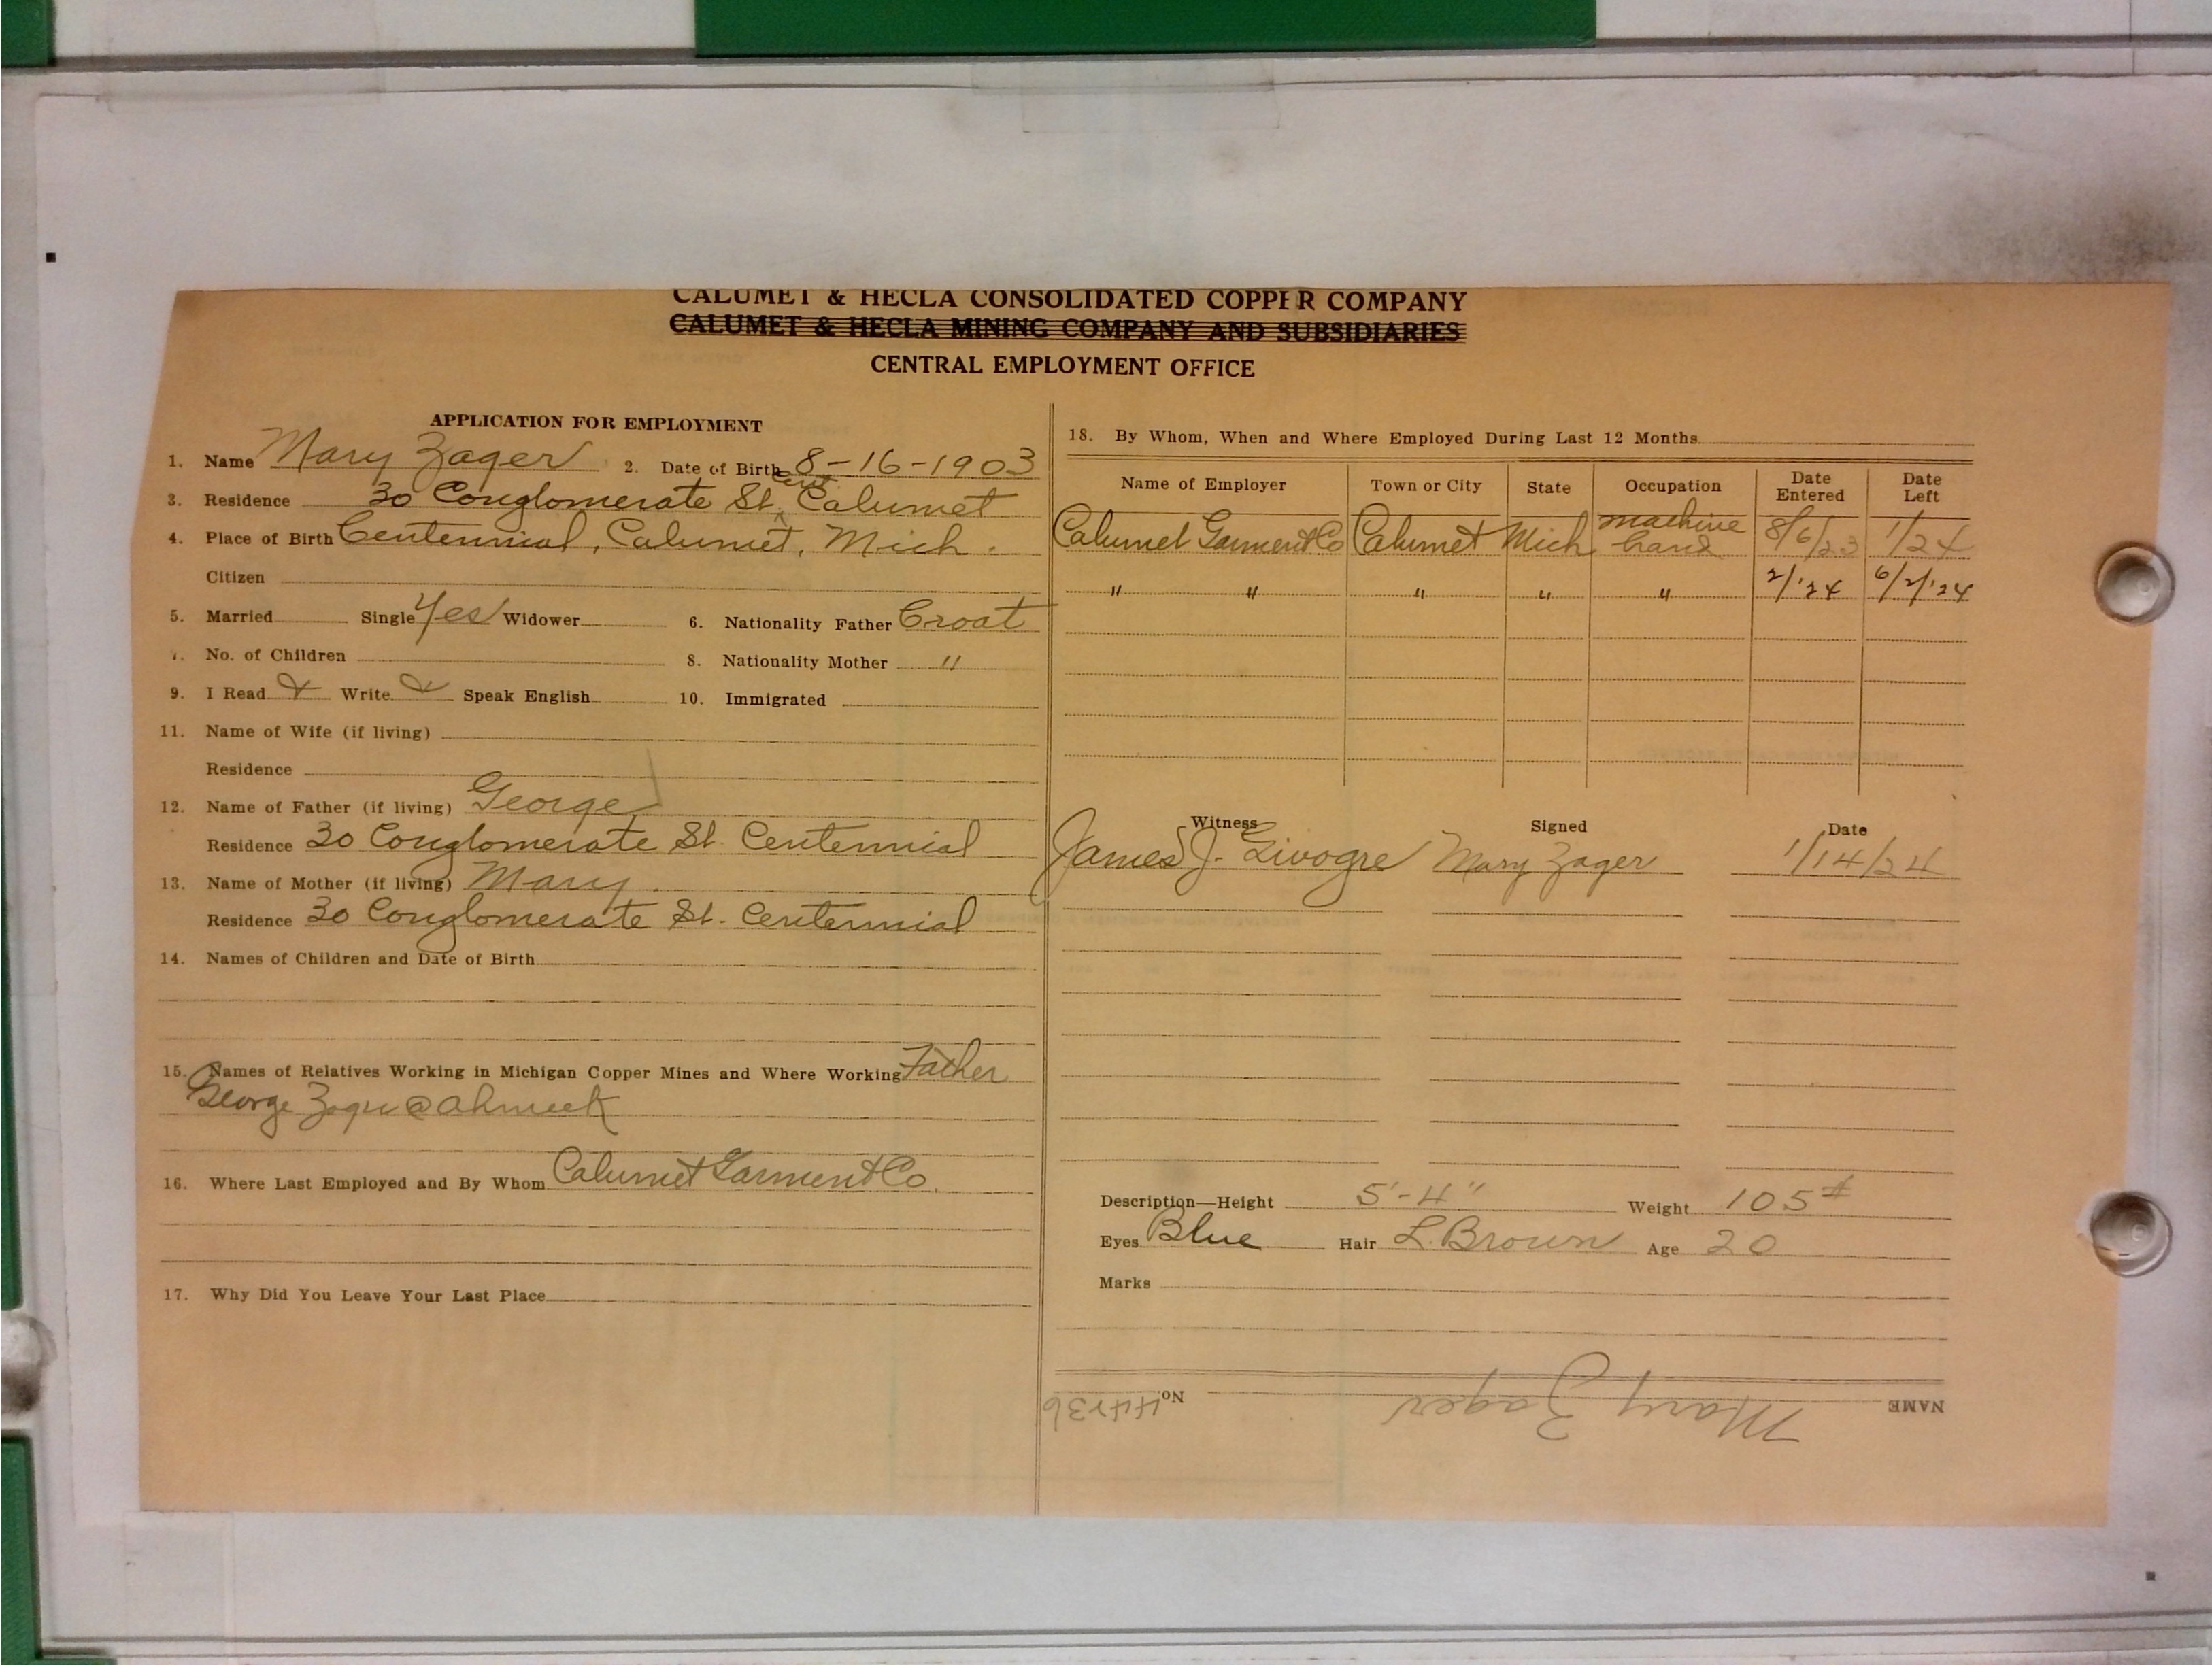 CALUMET & HECLA CONSOLIDATED COPPER COMPANY
CALUMET & HECLA MINING COMPANY AND SUBSIDIARIES
CENTRAL EMPLOYMENT OFFICE
APPLICATION FOR EMPLOYMENT
1. Name Mary Zager 2. Date of Birth 8-16-1903
3. Residence 30 Conglomerate St. Cent. Calumet
4. Place of Birth Centennial, Calumet, Mich.
Citizen
5. Married Single Yes Widower 6. Nationality Father Croat
7. No. of Children 8. Nationality Mother "
9. I Read & Write & Speak English 10. Immigrated
11. Name of Wife (if living)
Residence
12. Name of Father (if living) George
Residence 30 Conglomerate St. Centennial
13. Name of Mother (if living) Mary.
Residence 30 Conglomerate St. Centennial
14. Names of Children and Date of Birth
15. Names of Relatives Working in Michigan Copper Mines and Where Working Father
George Zager @ Ahmeek
16. Where Last Employed and By Whom Calumet Garment Co.
17. Why Did You Leave Your Last Place
18. By Whom, When and Where Employed During Last 12 Months
Name of Employer Town or City State Occupation Date Entered Date Left
Calumet Garment Co Calumet Mich machine hand 8/6/23 1/24
" " " " " 2/'24 6/2/'24
Witness Signed Date
James J. Livogre Mary Zager 1/14/24
Description—Height 5'-4" Weight 105#
Eyes Blue Hair L. Brown Age 20
Marks
NAME Mary Zager No.